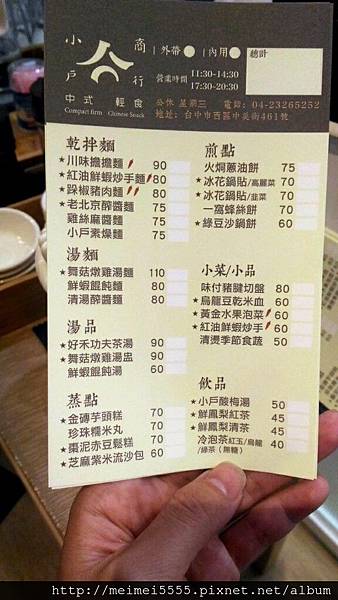 小 商
戶 行
中式 輕食
Compact firm Chinese Snack
|外帶 |內用
總計
營業時間 11:30-14:30
17:30-20:30
公休 星期三 電話: 04-23265252
地址: 台中市西區中美街461號
乾拌麵
★川味擔擔麵 90
★紅油鮮蝦炒手麵 80
★跺椒豬肉麵 80
★老北京醡醬麵 70
雞絲麻醬麵 70
小戶素燥麵 70
湯麵
★舞菇燉雞湯麵 110
鮮蝦餛飩麵 80
清湯醡醬麵 80
湯品
★好禾功夫茶湯 90
★舞菇燉雞湯盅 90
鮮蝦餛飩湯 60
蒸點
★金磚芋頭糕 70
珍珠糯米丸 70
★棗泥赤豆鬆糕 70
★芝麻紫米流沙包 60
煎點
火焗蔥油餅 75
★冰花鍋貼/高麗菜 70
★冰花鍋貼/韭菜 70
一窩蜂絲餅 70
★綠豆沙鍋餅 60
小菜/小品
味付豬腱切盤 80
★烏龍豆乾米血 60
★黃金水果泡菜 60
★紅油鮮蝦炒手 60
清燙季節食蔬 50
飲品
★小戶酸梅湯 50
★鮮鳳梨紅茶 45
★鮮鳳梨清茶 45
冷泡茶紅玉/烏龍 40
/綠茶（無糖）
http://meimei5555.pixnet.net/album